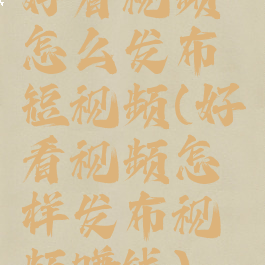 好看视频
怎么发布
短视频(好
看视频怎
样发布视
频赚钱)